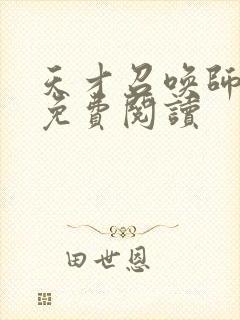 天才召喚師
免費閱讀
田世恩